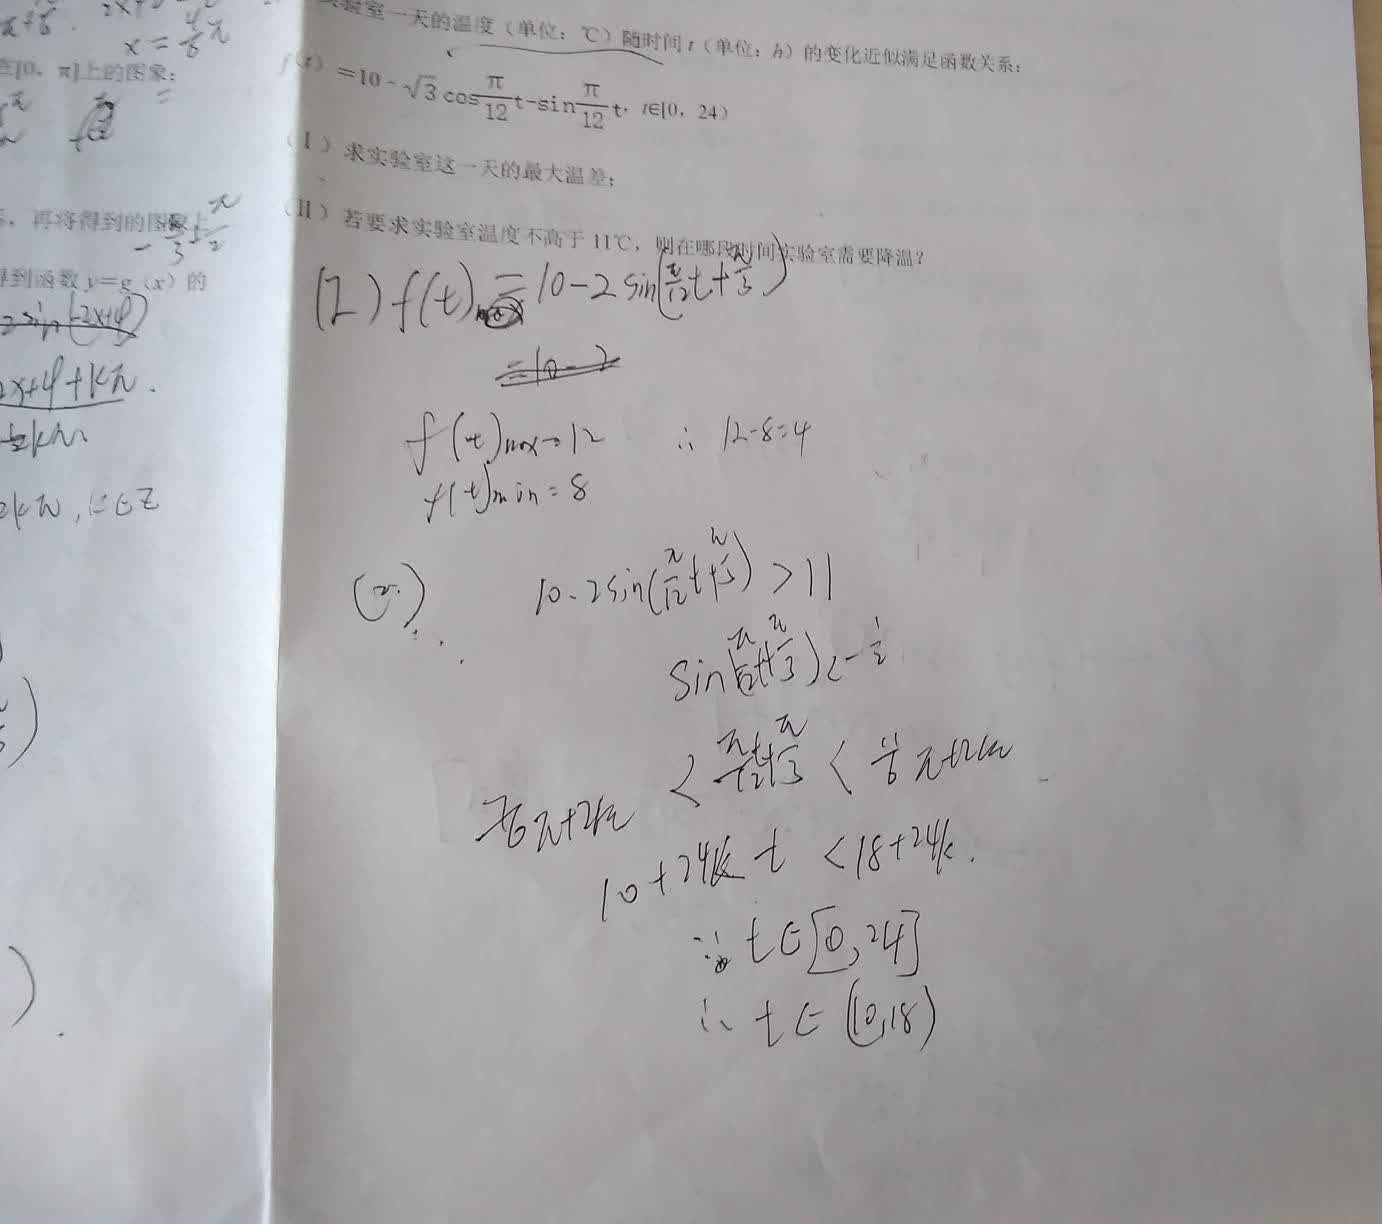 x = 4/6 π
在[0, π]上的图象;
再将得到的图象上
- π/3 + π/2
得到函数 y=g (x) 的
2sin(2x+φ)
2x+φ+kπ.
2kπ, k∈Z
实验室一天的温度（单位：℃）随时间 t（单位：h）的变化近似满足函数关系：
f(t) =10-√3cos π/12 t-sin π/12 t, t∈[0, 24)
(I) 求实验室这一天的最大温差;
(II) 若要求实验室温度不高于 11℃, 则在哪段时间实验室需要降温?
(1) f(t) = 10-2sin(π/12 t+π/3)
=10-2
f(t)max=12 ∴ 12-8=4
f(t)min=8
(2) 10-2sin(π/12 t+π/3) >11
sin(π/12 t+π/3)<-1/2
7/6 π+2kπ < π/12 t+π/3 < 11/6 π+2kπ
10+24k t <18+24k.
∵ t∈[0,24]
∴ t∈(10,18)